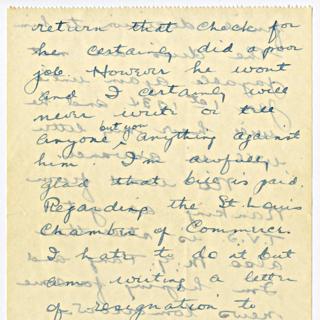 return that check for
he certainly did a poor
job. However he wont
and I certainly will
never write or tell
but you
anyone anything against
him. I'm awfully
glad that bill is paid.
Regarding the St. Louis
Chamber of Commerce.
I hate to do it but
am writing a letter
of resignation to